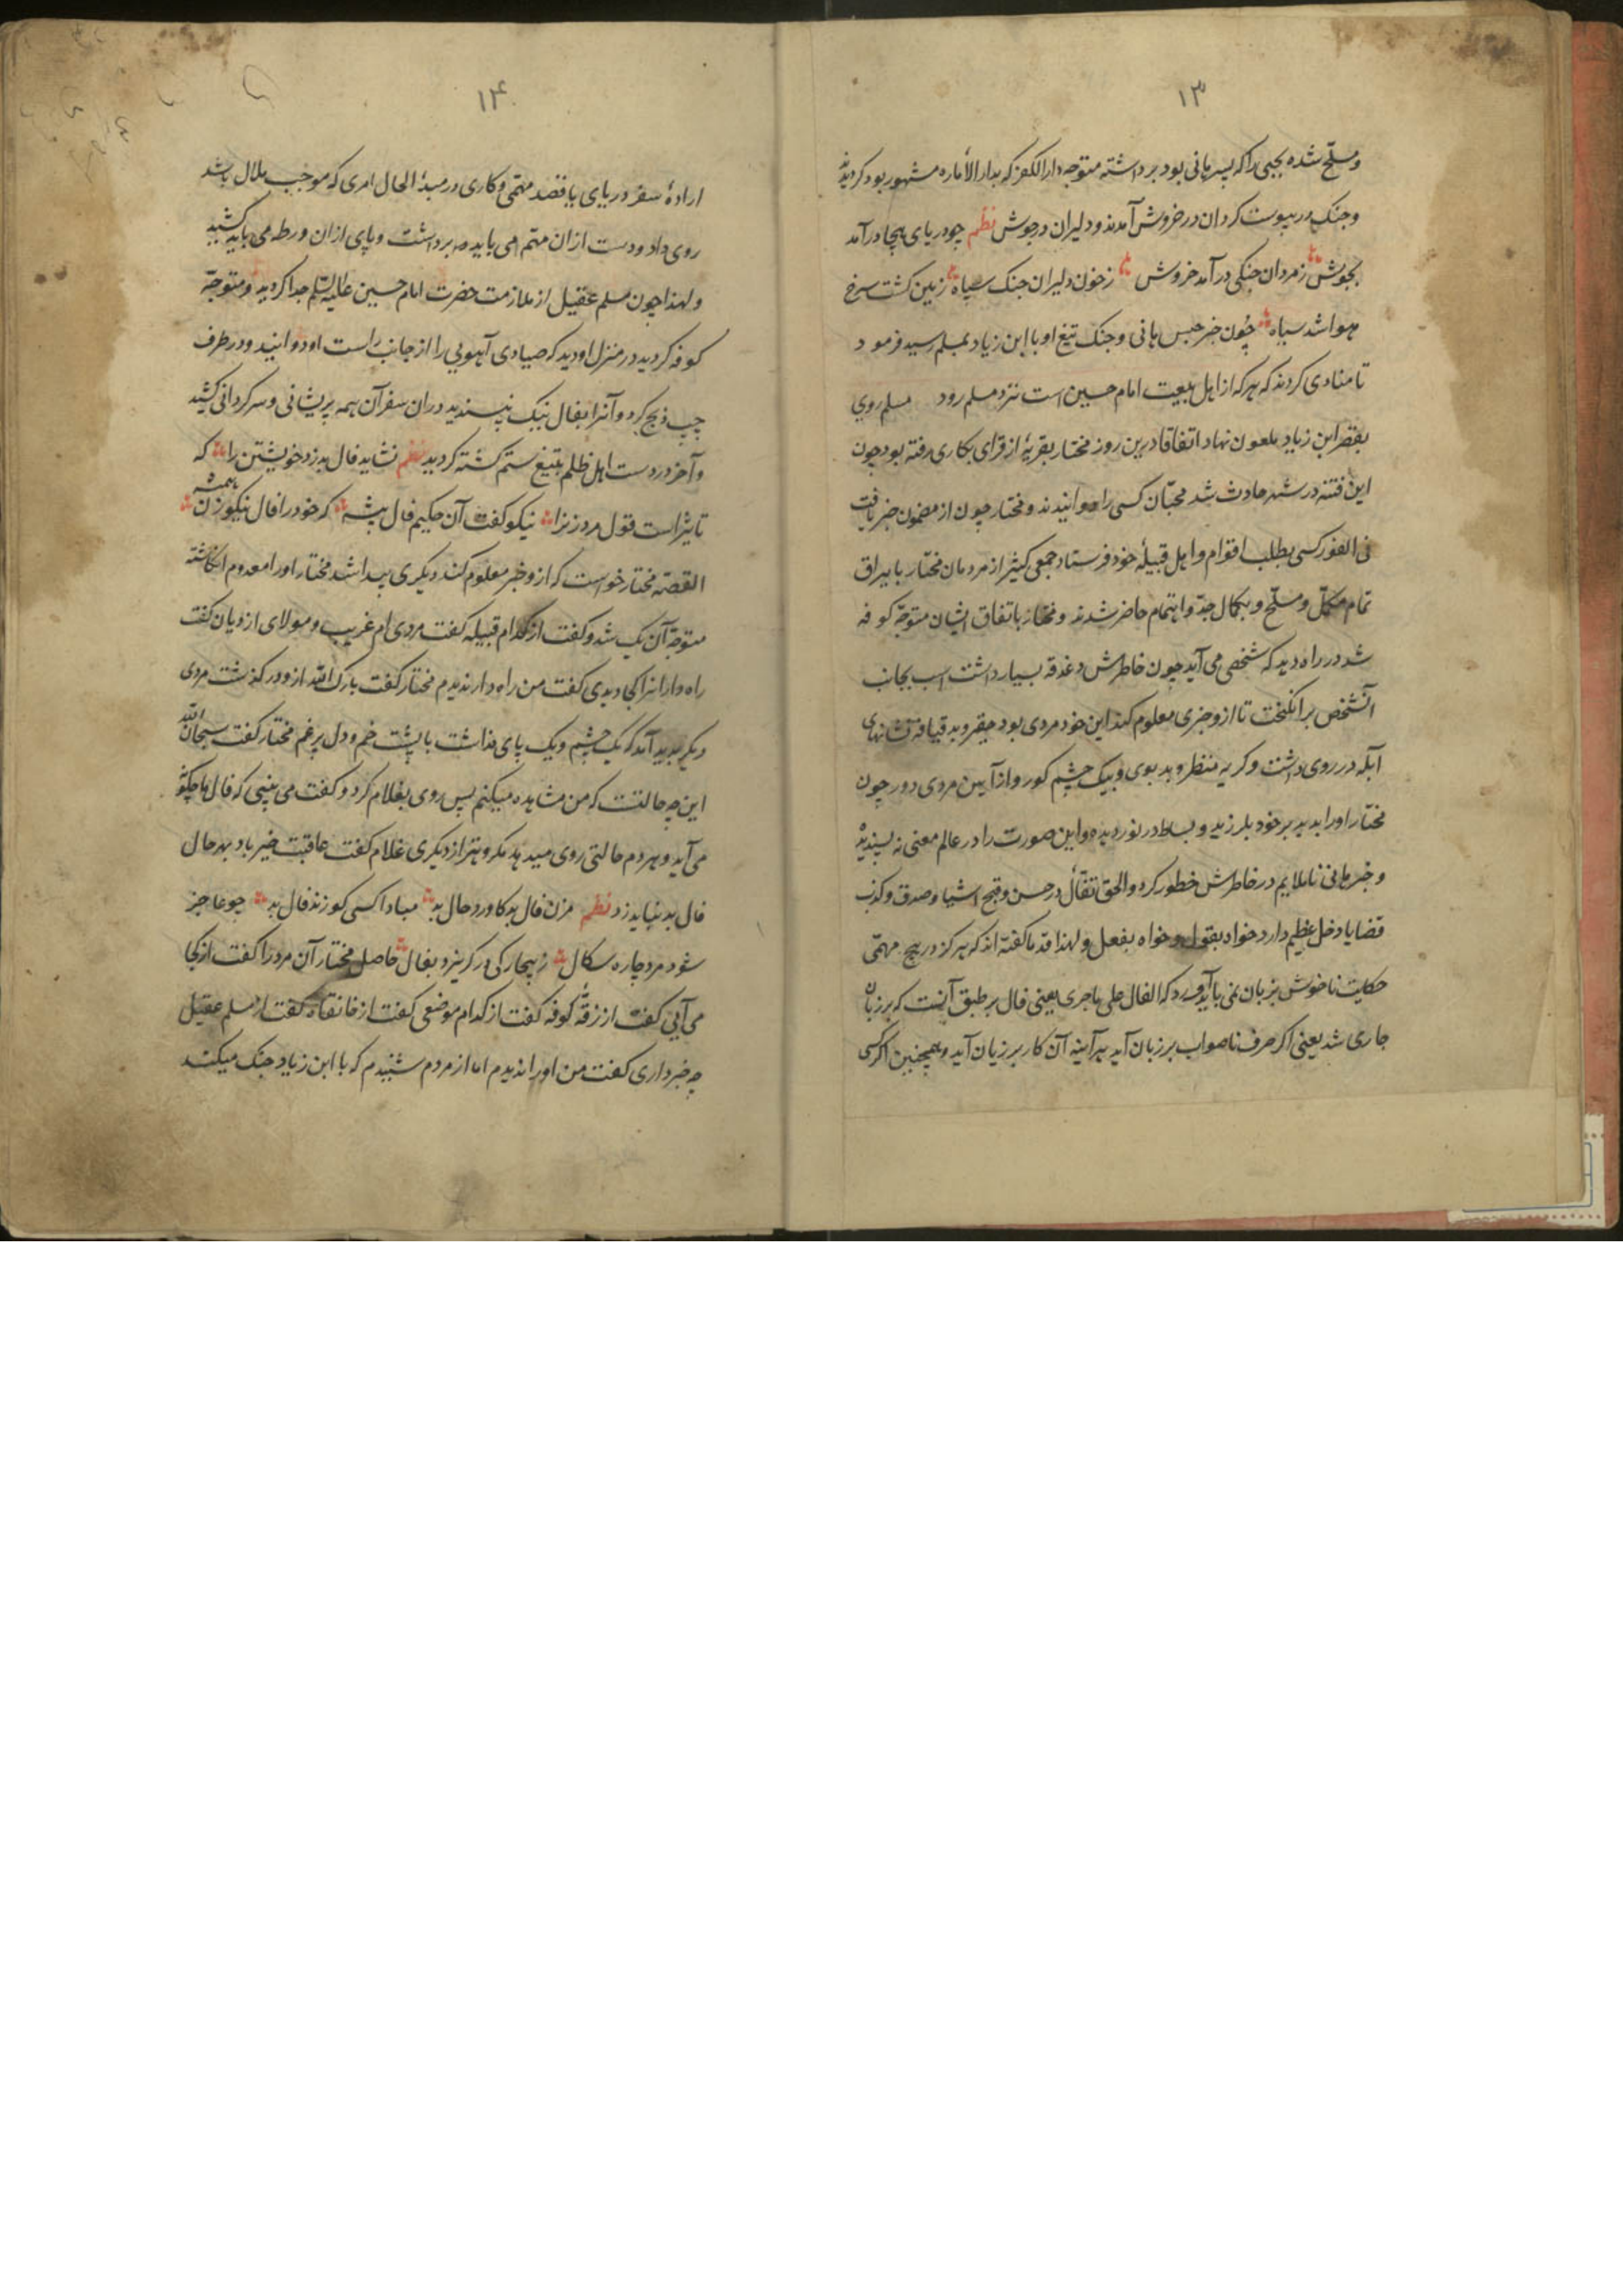 ۱۳
و مسلّح شده یحیی را که پسر هانی بود برداشته متوجه دار الکفر که بدار الأماره مشهور بود کردیدند
و جنک در پیوست کردان در خروش آمدند و دلیران در جوش نظم چو دریای هیجا درآمد
بجوش زمردان جنکی درآمد خروش زخون دلیران جنک سپاه زمین کشت سرخ
هوا شد سیاه چون خبر حبس هانی و جنک تبغ او با ابن زیاد بمسلم رسید فرمود
تا منادی کردند که هرکه از اهل بیعت امام حسین است نزد مسلم رود مسلم روی
بقصر ابن زیاد ملعون نهاد اتفاقا درین روز مختار بقریهٔ از قرای بکاری رفته بود چون
این فتنه در شهر حادث شد محبّان کسی را دوانیدند و مختار چون از مضمون خبر یافت
فی الفور کسی بطلب اقوام و اهل قبیلهٔ خود فرستاد جمعی کثیر از مردمان مختار با یراق
تمام مکمّل و مسلّح و بکمال جدّ و اهتمام حاضر شدند و مختار باتفاق ایشان متوجّه کوفه
شد در راه دید که شخصی می آید چون خاطرش دغدغه بسیار داشت اسب بجانب
آنشخص برانکیخت تا ازو خبری معلوم کند این خود مردی بود حقیر و بد قیافه نشانهای
آبله در روی داشت و کریه منظر و بد بوی و بیک چشم کور و از آیین مردی دور چون
مختار او را بدید بر خود بلرزید و بساط در نوردیده و این صورت را در عالم معنی نه پسندیده
و خبر هانی ناملایم در خاطرش خطور کرد و الحق تفأّل در حسن و قبح اشیا و صدق و کذب
قضایا دخل عظیم دارد خواه بقول و خواه بفعل و لهذا قدما کفته اند که هرکز در هیچ مهمّی
حکایت ناخوش بزبان نمی باید آورد که الفال علی ماجری یعنی فال بر طبق آنست که بر زبان
جاری شد یعنی اکر حرف ناصواب بر زبان آید هر آینه آن کار بر زیان آید و همچنین اکر کسی
۱۴
ارادهٔ سفر دریای یا قصد مهمّی و کاری در مبدأ الحال امری که موجب ملال باشد
روی داد و دست ازان مهّم می باید برداشت و پای ازان ورطه می باید کشید
و لهذا چون مسلم عقیل از ملازمت حضرت امام حسین علیه السّلم جدا کردید و متوجّه
کوفه کردید در منزل او دید که صیادی آهویی را از جانب راست او دوانید و در طرف
چپ ذبح کرد و آنرا بفال نیک نپسندید دران سفر آن همه پریشانی و سرکردانی کشید
و آخر در دست اهل ظلم بتیغ ستم کشته کردید نظم نشاید فال بد زد خویشتن را که
تاثیر است قول مرد و زن را نیکو کفت آن حکیم فال پیشه که خود را فال نیکو زن همیشه
القصّه مختار خواست که ازو خبر معلوم کند دیکری پیدا شد مختار او را معدوم انکاشته
متوجّه آن یک شد و کفت از کدام قبیله کفت مردی ام غریب و مولای ازدیان کفت
راه دارانرا کجا دیدی کفت من راه دار ندیدم مختار کفت بارک الله ازو در کذشت مردی
دیکر پدید آمد که یک چشم و یک پای نداشت با پشت خم و دل پر غم مختار کفت سبحان الله
این چه حالتست که من مشاهده میکنم پس روی بغلام کرد و کفت می بینی که فال ما چکونه
می آید و هر دم حالتی روی میدهد مکروه تر از دیکری غلام کفت عاقبت خیر باد بهر حال
فال بد نباید زد نظم مزن فال بد کاورد حال بد مبادا کسی کو زند فال بد چو عاجز
شود مرد چاره سکال زبیچارکی در کریزد بفال حاصل مختار آن مرد را کفت از کجا
می آیی کفت از زقّهٔ کوفه کفت از کدام موضعی کفت از خانقاه کفت از مسلم عقیل
چه خبر داری کفت من او را ندیدم اما از مردم شنیدم که با ابن زیاد جنک میکند